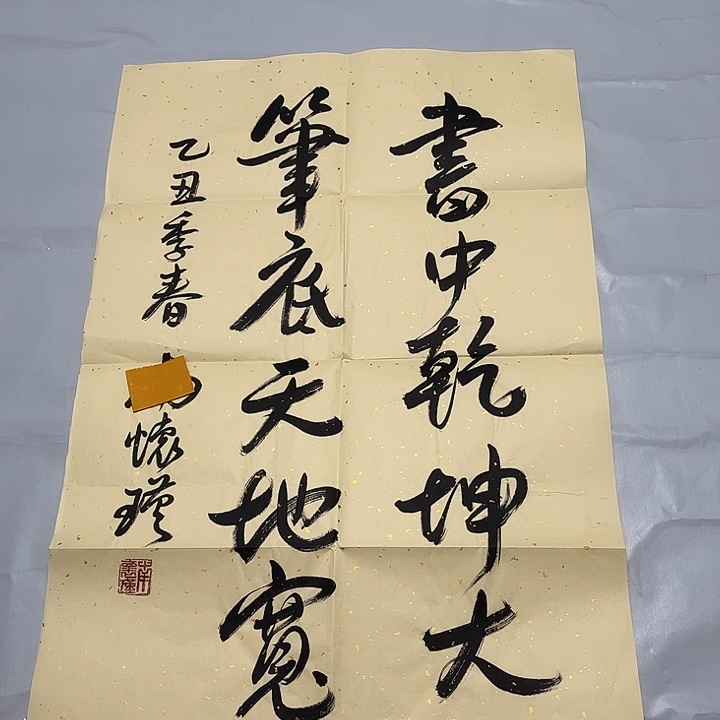 書中乾坤大
筆底天地寬
乙丑季春
懷瑾